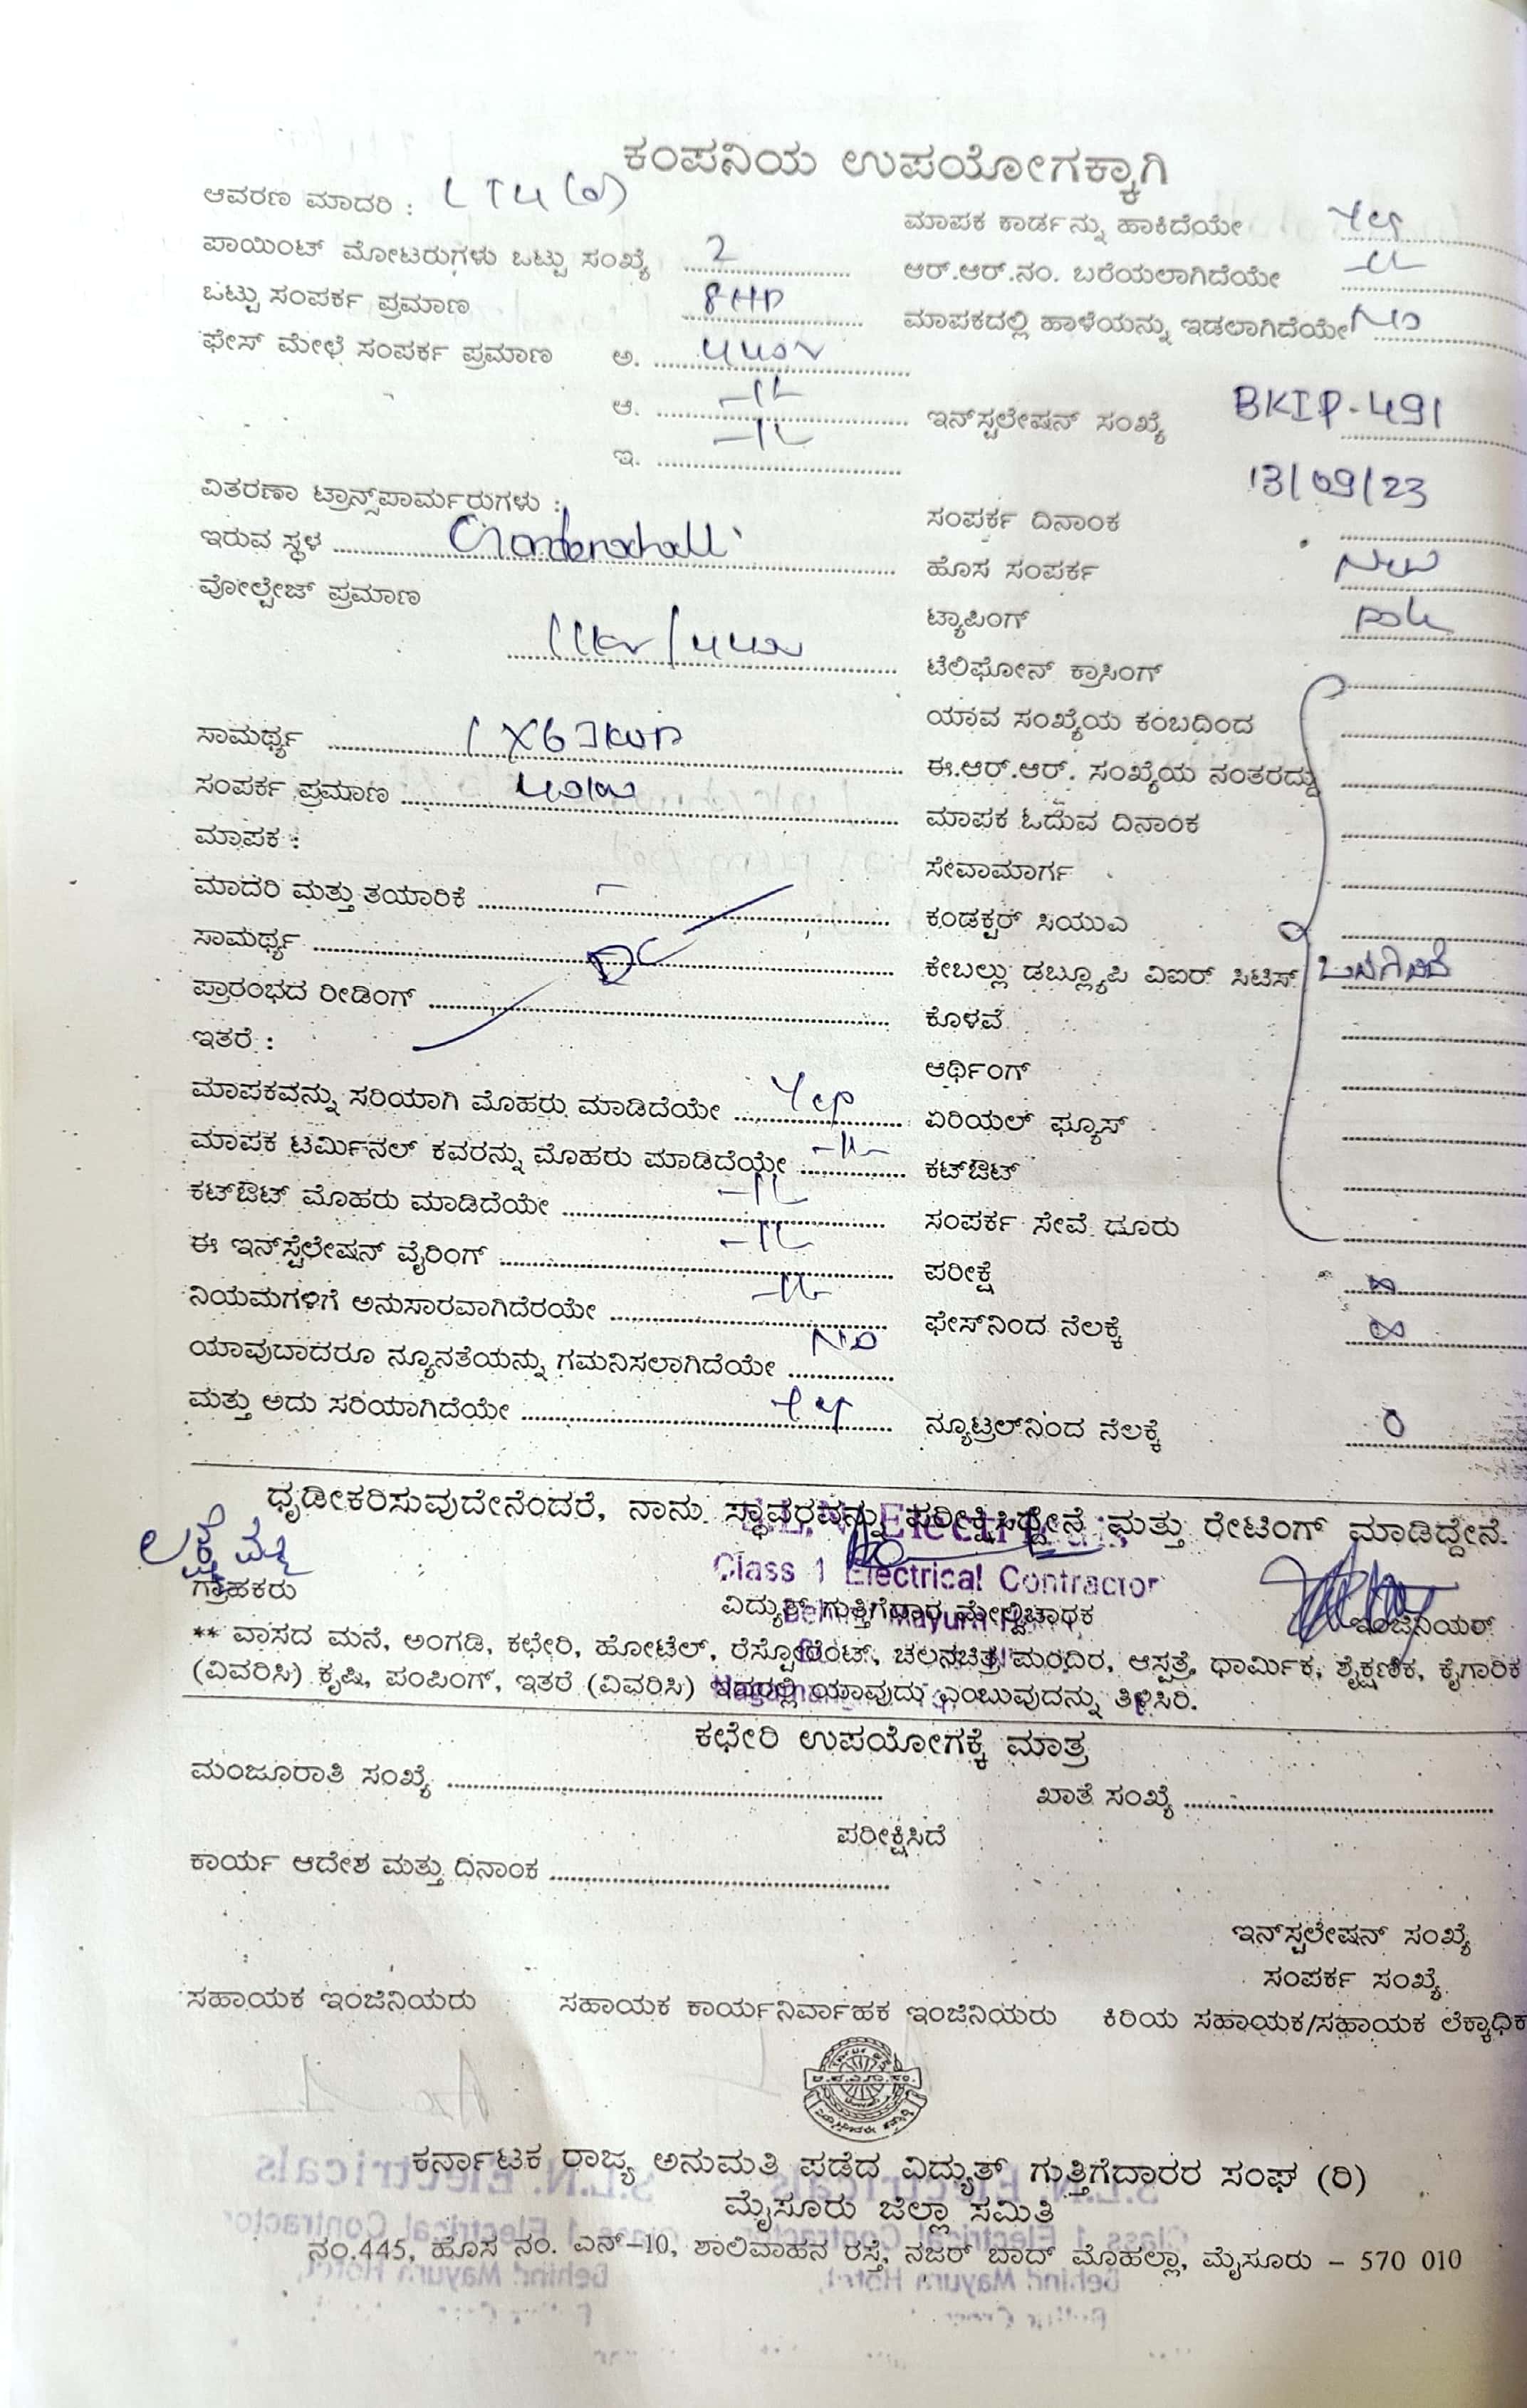 ಕಂಪನಿಯ ಉಪಯೋಗಕ್ಕಾಗಿ
ಆವರಣ ಮಾದರಿ : LT4(a)
ಪಾಯಿಂಟ್ ಮೋಟರುಗಳು ಒಟ್ಟು ಸಂಖ್ಯೆ 2
ಒಟ್ಟು ಸಂಪರ್ಕ ಪ್ರಮಾಣ 8HP
ಫೇಸ್ ಮೇಲೆ ಸಂಪರ್ಕ ಪ್ರಮಾಣ ಅ. 440v
ಆ. -11-
ಇ. -11-
ವಿತರಣಾ ಟ್ರಾನ್ಸ್‌ಪಾರ್ಮರುಗಳು :
ಇರುವ ಸ್ಥಳ
ವೋಲ್ಟೇಜ್ ಪ್ರಮಾಣ
11kv/440v
ಸಾಮರ್ಥ್ಯ 1X63KVA
ಸಂಪರ್ಕ ಪ್ರಮಾಣ
ಮಾಪಕ :
ಮಾದರಿ ಮತ್ತು ತಯಾರಿಕೆ
ಸಾಮರ್ಥ್ಯ
ಪ್ರಾರಂಭದ ರೀಡಿಂಗ್
ಇತರೆ :
ಮಾಪಕವನ್ನು ಸರಿಯಾಗಿ ಮೊಹರು ಮಾಡಿದೆಯೇ Yes
ಮಾಪಕ ಟರ್ಮಿನಲ್ ಕವರನ್ನು ಮೊಹರು ಮಾಡಿದೆಯೇ -11-
ಕಟ್‌ಔಟ್ ಮೊಹರು ಮಾಡಿದೆಯೇ -11-
ಈ ಇನ್‌ಸ್ಟೆಲೇಷನ್ ವೈರಿಂಗ್ -11-
ನಿಯಮಗಳಿಗೆ ಅನುಸಾರವಾಗಿದೆರಯೇ -11-
ಯಾವುದಾದರೂ ನ್ಯೂನತೆಯನ್ನು ಗಮನಿಸಲಾಗಿದೆಯೇ No
ಮತ್ತು ಅದು ಸರಿಯಾಗಿದೆಯೇ Yes
ಮಾಪಕ ಕಾರ್ಡನ್ನು ಹಾಕಿದೆಯೇ Yes
ಆರ್.ಆರ್.ನಂ. ಬರೆಯಲಾಗಿದೆಯೇ -11-
ಮಾಪಕದಲ್ಲಿ ಹಾಳೆಯನ್ನು ಇಡಲಾಗಿದೆಯೇ No
ಇನ್‌ಸ್ಟಲೇಷನ್ ಸಂಖ್ಯೆ BKIP-491
ಸಂಪರ್ಕ ದಿನಾಂಕ 13/09/23
ಹೊಸ ಸಂಪರ್ಕ New
ಟ್ಯಾಪಿಂಗ್ Pole
ಟೆಲಿಫೋನ್ ಕ್ರಾಸಿಂಗ್
ಯಾವ ಸಂಖ್ಯೆಯ ಕಂಬದಿಂದ
ಈ.ಆರ್.ಆರ್. ಸಂಖ್ಯೆಯ ನಂತರದ್ದು
ಮಾಪಕ ಓದುವ ದಿನಾಂಕ
ಸೇವಾಮಾರ್ಗ
ಕಂಡಕ್ಟರ್ ಸಿಯುಎ
ಕೇಬಲ್ಲು ಡಬ್ಲ್ಯೂಪಿ ವಿಐರ್ ಸಿಟಿಸ್ ಒದಗಿಸಿದೆ
ಕೊಳವೆ
ಆರ್ಥಿಂಗ್
ಏರಿಯಲ್ ಫ್ಯೂಸ್
ಕಟ್‌ಔಟ್
ಸಂಪರ್ಕ ಸೇವೆ ಡೂರು
ಪರೀಕ್ಷೆ
ಫೇಸ್‌ನಿಂದ ನೆಲಕ್ಕೆ
ನ್ಯೂಟ್ರಲ್‌ನಿಂದ ನೆಲಕ್ಕೆ 0
ಧೃಡೀಕರಿಸುವುದೇನೆಂದರೆ, ನಾನು ಸ್ಥಾವರವನ್ನು ಪರೀಕ್ಷಿಸಿದ್ದೇನೆ ಮತ್ತು ರೇಟಿಂಗ್ ಮಾಡಿದ್ದೇನೆ.
ಲಕ್ಷ್ಮಮ್ಮ
Class 1 Electrical Contractor
ಗ್ರಾಹಕರು ವಿದ್ಯುತ್ ಗುತ್ತಿಗೆದಾರ ಮೇಲ್ವಿಚಾರಕ ಇಂಜಿನಿಯರ್
** ವಾಸದ ಮನೆ, ಅಂಗಡಿ, ಕಛೇರಿ, ಹೋಟೆಲ್, ರೆಸ್ಟೋರೆಂಟ್, ಚಲನಚಿತ್ರ ಮಂದಿರ, ಆಸ್ಪತ್ರೆ, ಧಾರ್ಮಿಕ, ಶೈಕ್ಷಣಿಕ, ಕೈಗಾರಿಕ
(ವಿವರಿಸಿ) ಕೃಷಿ, ಪಂಪಿಂಗ್, ಇತರೆ (ವಿವರಿಸಿ) ಇದರಲ್ಲಿ ಯಾವುದು ಎಂಬುವುದನ್ನು ತಿಳಿಸಿರಿ.
ಕಛೇರಿ ಉಪಯೋಗಕ್ಕೆ ಮಾತ್ರ
ಮಂಜೂರಾತಿ ಸಂಖ್ಯೆ
ಖಾತೆ ಸಂಖ್ಯೆ
ಪರೀಕ್ಷಿಸಿದೆ
ಕಾರ್ಯ ಆದೇಶ ಮತ್ತು ದಿನಾಂಕ
ಇನ್‌ಸ್ಟಲೇಷನ್ ಸಂಖ್ಯೆ
ಸಂಪರ್ಕ ಸಂಖ್ಯೆ
ಸಹಾಯಕ ಇಂಜಿನಿಯರು ಸಹಾಯಕ ಕಾರ್ಯನಿರ್ವಾಹಕ ಇಂಜಿನಿಯರು ಕಿರಿಯ ಸಹಾಯಕ/ಸಹಾಯಕ ಲೆಕ್ಕಾಧಿಕ
ಕರ್ನಾಟಕ ರಾಜ್ಯ ಅನುಮತಿ ಪಡೆದ ವಿದ್ಯುತ್ ಗುತ್ತಿಗೆದಾರರ ಸಂಘ (ರಿ)
ಮೈಸೂರು ಜಿಲ್ಲಾ ಸಮಿತಿ
ನಂ.445, ಹೊಸ ನಂ. ಎನ್-10, ಶಾಲಿವಾಹನ ರಸ್ತೆ, ನಜರ್ ಬಾದ್ ಮೊಹಲ್ಲಾ, ಮೈಸೂರು – 570 010